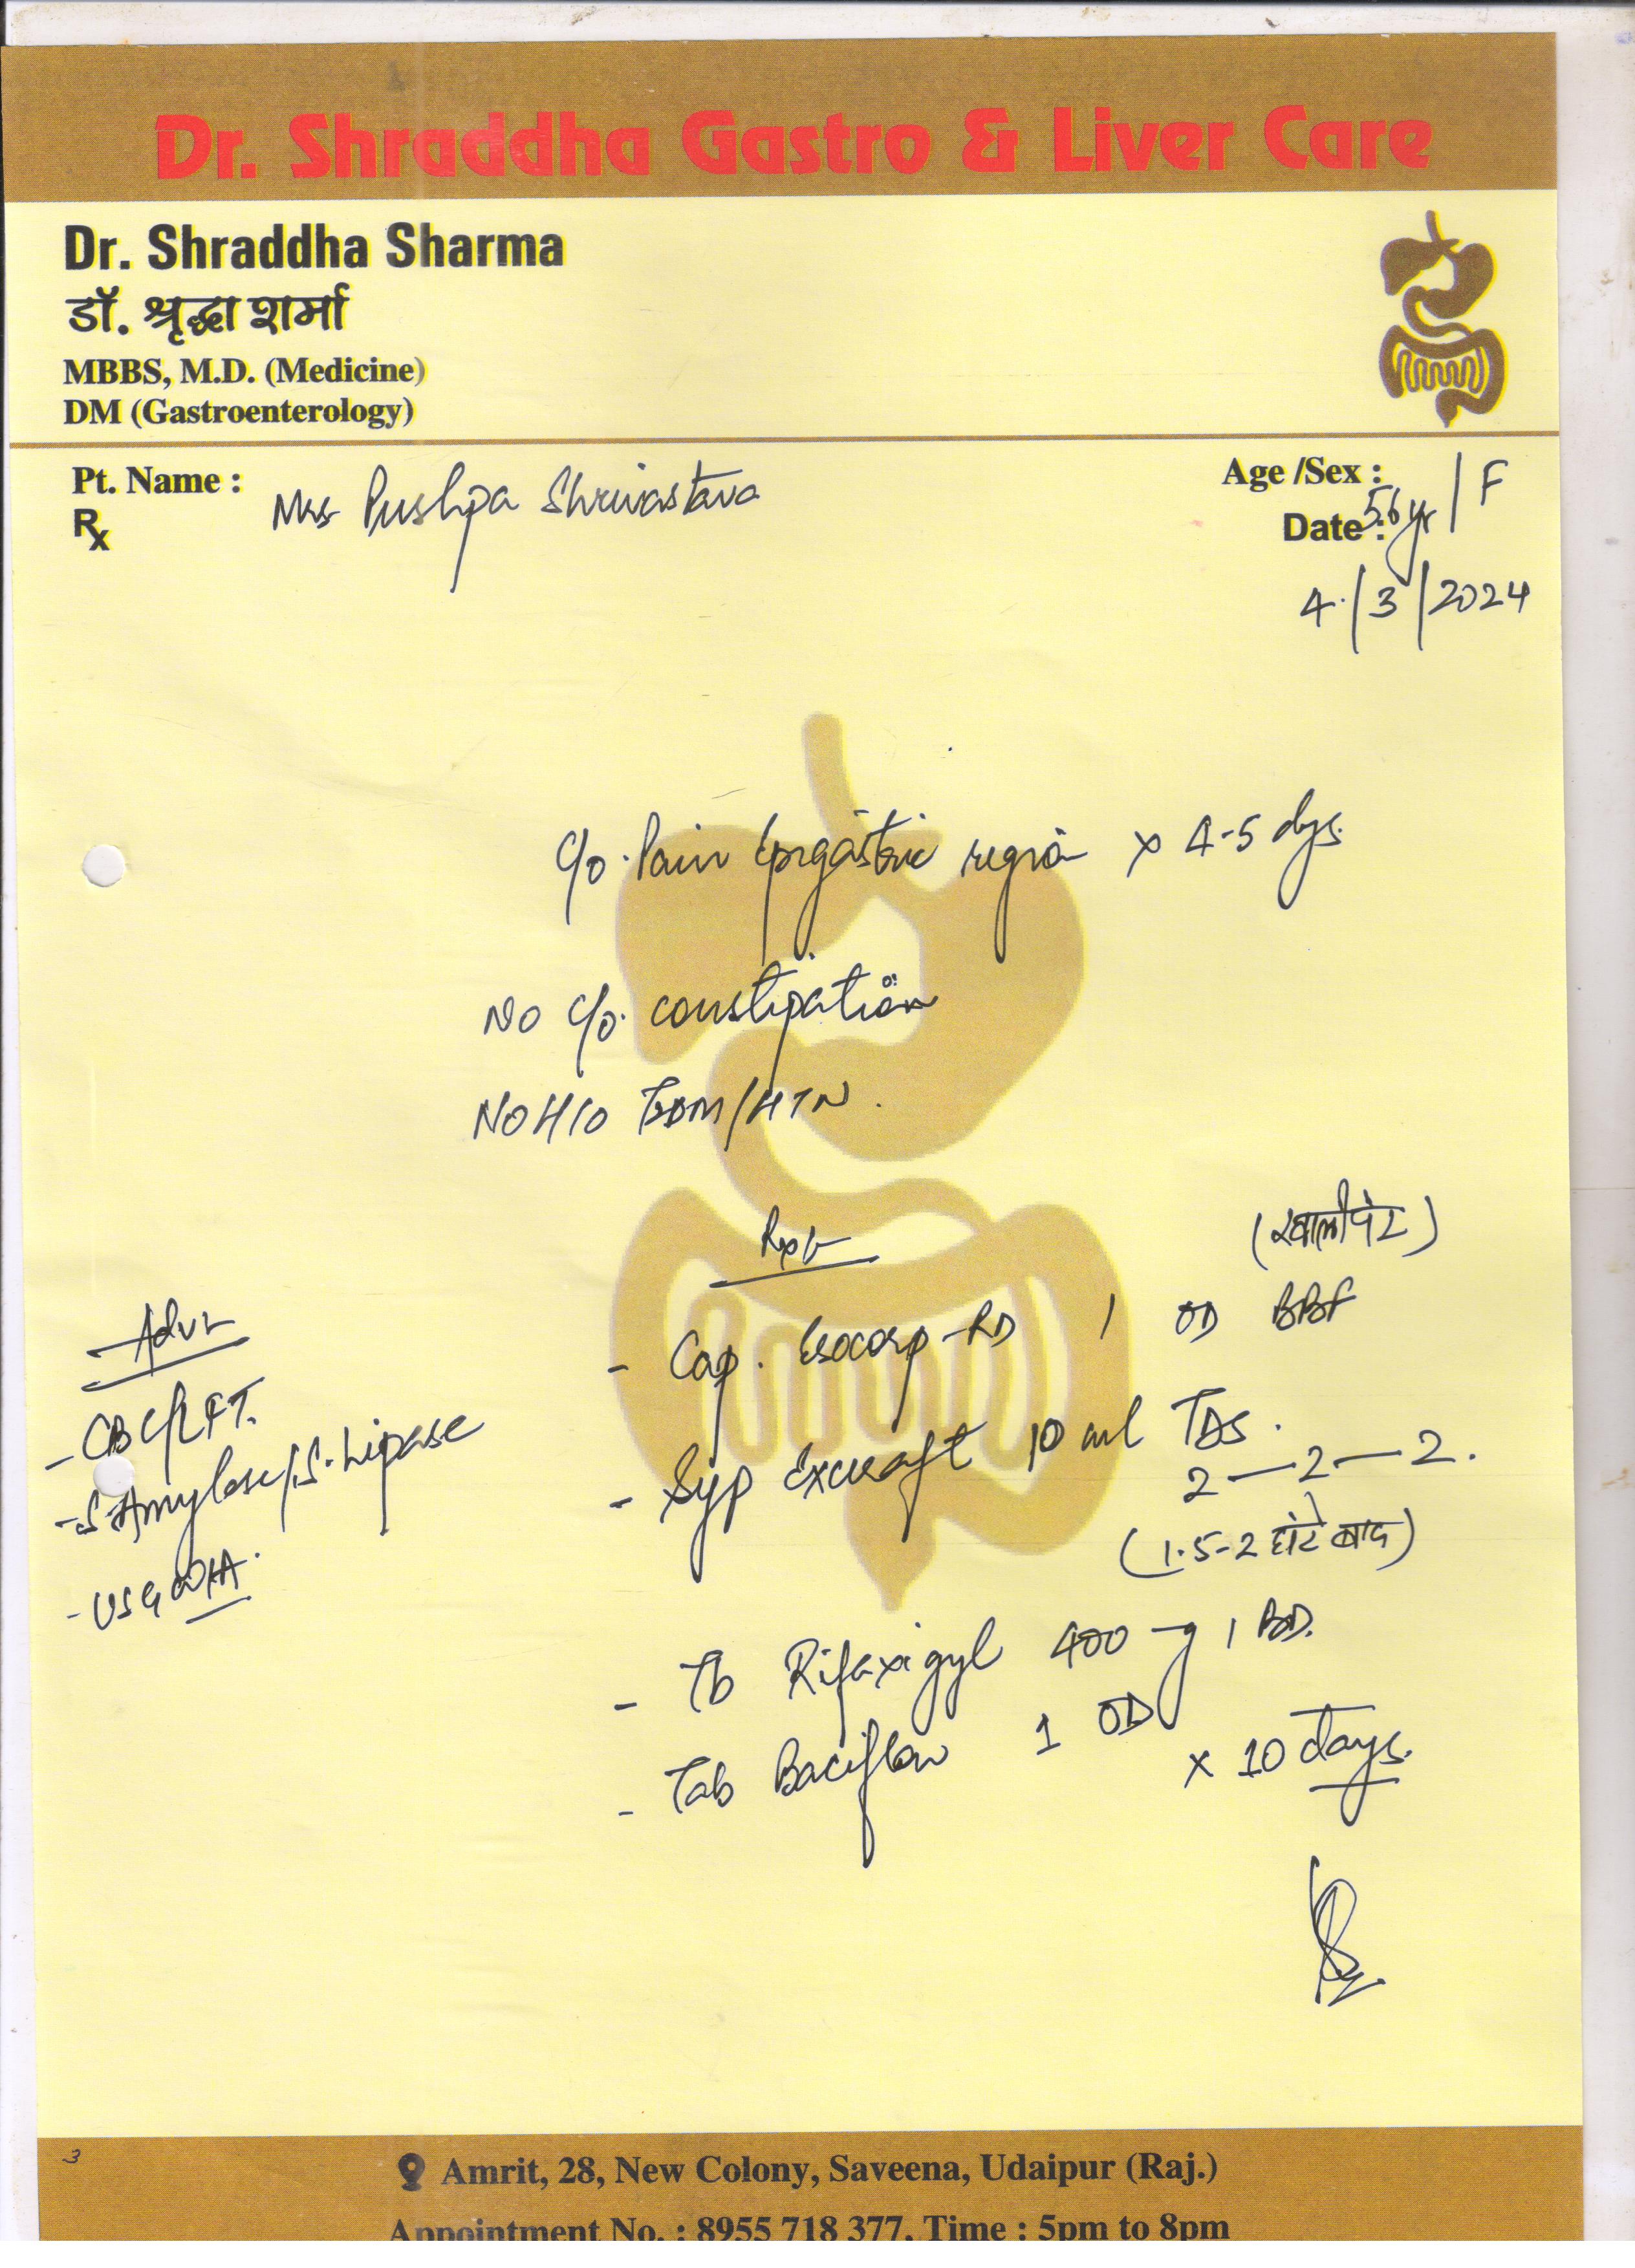 Dr. Shraddha Gastro & Liver Care
Dr. Shraddha Sharma
डॉ. श्रृद्धा शर्मा
MBBS, M.D. (Medicine)
DM (Gastroenterology)
Pt. Name : Mrs Pushpa Shrivastava
Age /Sex : 56 yr / F
Rx
Date :
4/3/2024
C/o. Pain Epigastric region x 4-5 dys.
No C/o. constipation
NO H/O T2DM/HTN.
(खाली पेट)
Advice
- CBC/LFT.
- S. Amylase/S. Lipase
- USG W/A.
- Cap. Esocorp-RD 1 OD BBF
- Syp Excraft 10 ml TDS.
2 — 2 — 2.
(1.5-2 घंटे बाद)
- Tb Rifaxigyl 400 mg 1 BD.
- Tab Baciflow 1 OD
x 10 days.
3
Amrit, 28, New Colony, Saveena, Udaipur (Raj.)
Appointment No. : 8955 718 377, Time : 5pm to 8pm